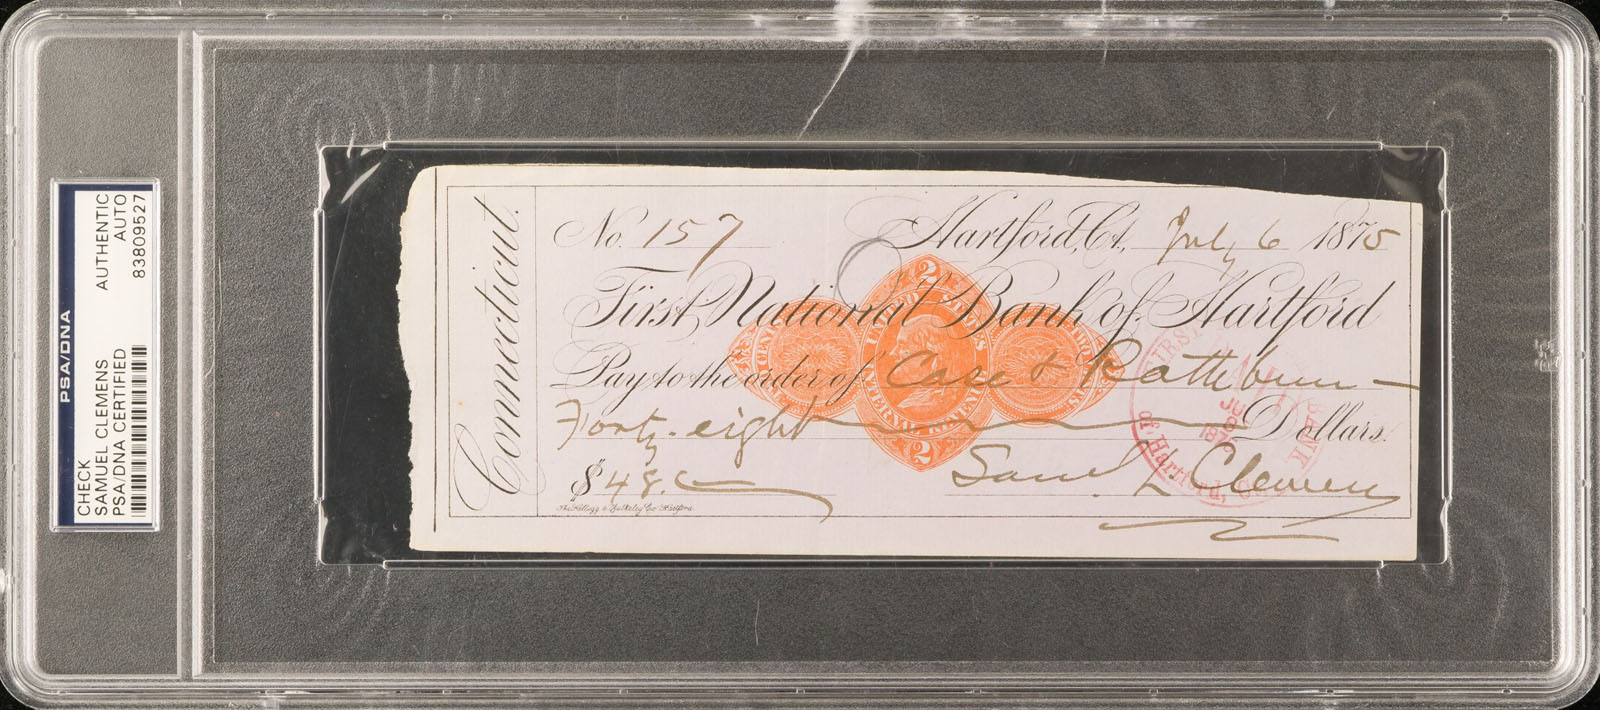 PSA/DNA
CHECK
SAMUEL CLEMENS
PSA/DNA CERTIFIED
AUTHENTIC
AUTO
83809527
Connecticut.
No. 157 Hartford, Ct. July 6 1875
First National Bank of Hartford
Pay to the order of Case & Rathbun
Forty-eight Dollars.
$ 48.
Saml. L Clemens
The Kellogg & Bulkeley Co. Hartford.
2
CENTS
INTERNAL REVENUE
2
FIRST BANK
of Hartford,